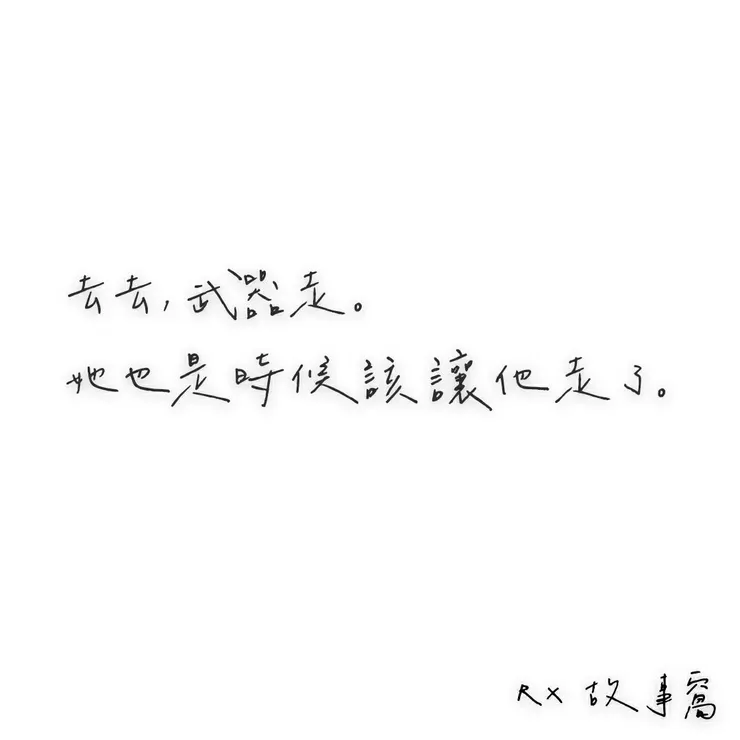 去去,武器走。
她也是時候該讓他走了。
RX 故事窩